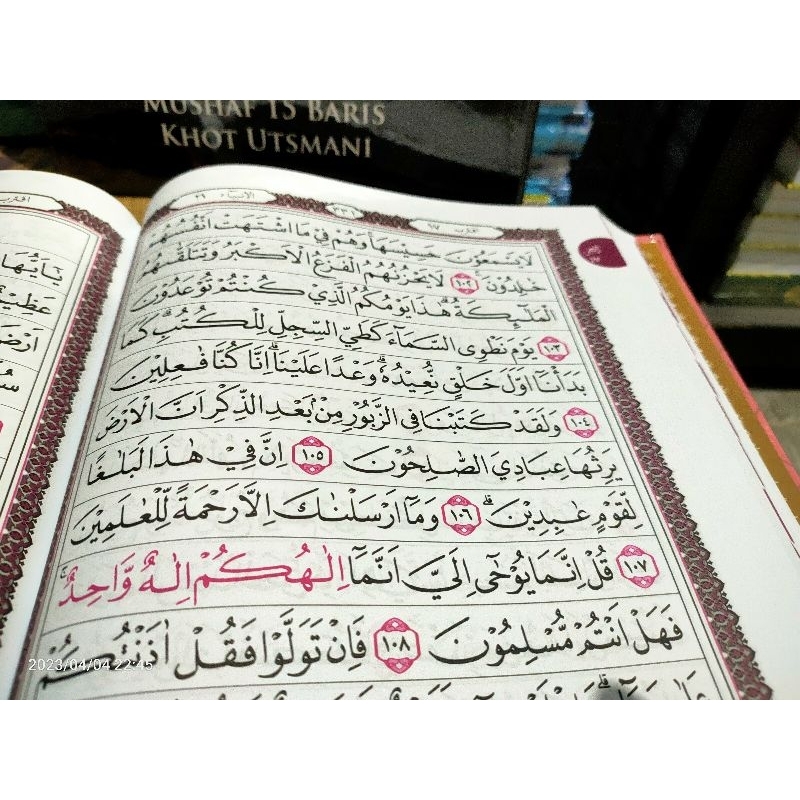 MUSHAF 15 BARIS
KHOT UTSMANI
الانبياء ٢١
٣٣١
لَا يَسْمَعُوْنَ حَسِيْسَهَا وَهُمْ فِيْ مَا اشْتَهَتْ اَنْفُسُهُمْ
خٰلِدُوْنَ ١٠٢ لَا يَحْزُنُهُمُ الْفَزَعُ الْاَكْبَرُ وَتَتَلَقّٰىهُمُ
الْمَلٰۤىِٕكَةُ هٰذَا يَوْمُكُمُ الَّذِيْ كُنْتُمْ تُوْعَدُوْنَ
١٠٣ يَوْمَ نَطْوِى السَّمَاۤءَ كَطَيِّ السِّجِلِّ لِلْكُتُبِ كَمَا
بَدَأْنَآ اَوَّلَ خَلْقٍ نُّعِيْدُهٗ وَعْدًا عَلَيْنَا اِنَّا كُنَّا فٰعِلِيْنَ
١٠٤ وَلَقَدْ كَتَبْنَا فِى الزَّبُوْرِ مِنْۢ بَعْدِ الذِّكْرِ اَنَّ الْاَرْضَ
يَرِثُهَا عِبَادِيَ الصّٰلِحُوْنَ ١٠٥ اِنَّ فِيْ هٰذَا لَبَلٰغًا
لِّقَوْمٍ عٰبِدِيْنَ ۗ ١٠٦ وَمَآ اَرْسَلْنٰكَ اِلَّا رَحْمَةً لِّلْعٰلَمِيْنَ
١٠٧ قُلْ اِنَّمَا يُوْحٰٓى اِلَيَّ اَنَّمَآ اِلٰهُكُمْ اِلٰهٌ وَّاحِدٌۚ
فَهَلْ اَنْتُمْ مُّسْلِمُوْنَ ١٠٨ فَاِنْ تَوَلَّوْا فَقُلْ اٰذَنْتُكُمْ
2023/04/04 22:45